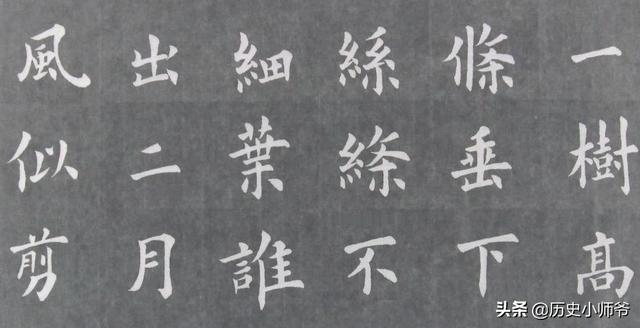 一樹高
條垂下
絲絛不
細葉誰
出二月
風似剪
头条 @历史小师爷